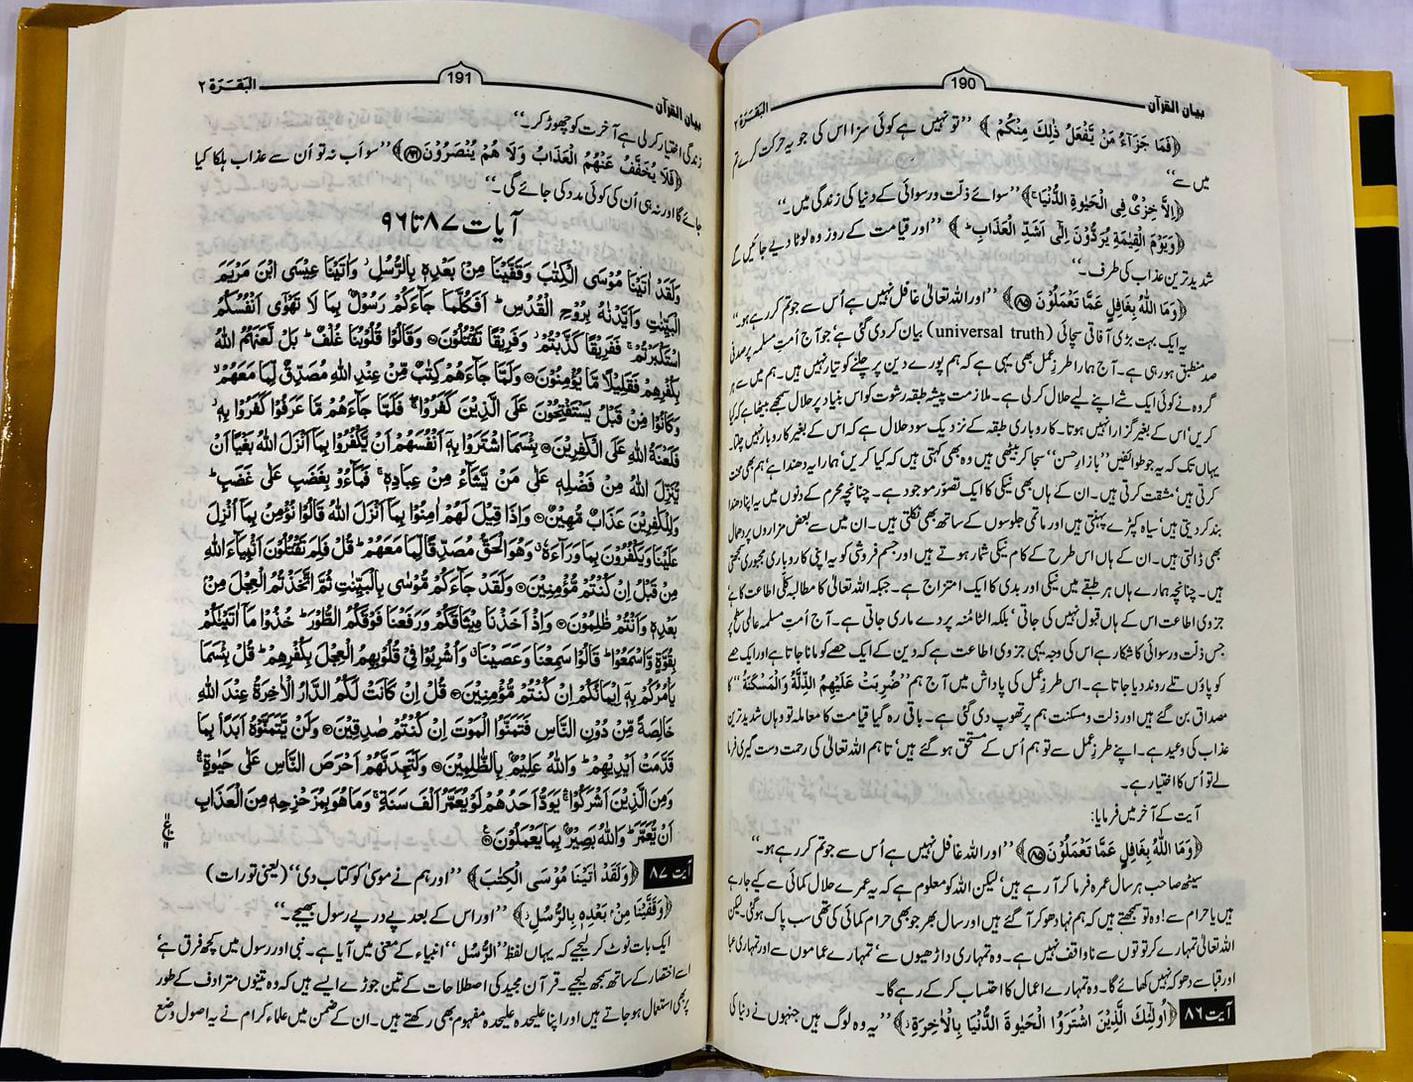 بیان القرآن 190 البَقَرَة ۲
﴿فَمَا جَزَآءُ مَنْ یَّفْعَلُ ذٰلِكَ مِنْكُمْ﴾ ’’تو نہیں ہے کوئی سزا اس کی جو یہ حرکت کرے تم
میں سے‘‘
﴿اِلَّا خِزْیٌ فِی الْحَیٰوةِ الدُّنْیَا ۚ﴾ ’’سوائے ذلّت و رسوائی کے دنیا کی زندگی میں۔‘‘
﴿وَیَوْمَ الْقِیٰمَةِ یُرَدُّوْنَ اِلٰٓی اَشَدِّ الْعَذَابِ ؕ﴾ ’’اور قیامت کے روز وہ لوٹا دیے جائیں گے
شدید ترین عذاب کی طرف۔‘‘
﴿وَمَا اللّٰهُ بِغَافِلٍ عَمَّا تَعْمَلُوْنَ ۝۸۵﴾ ’’اور اللہ تعالیٰ غافل نہیں ہے اُس سے جو تم کر رہے ہو۔‘‘
یہ ایک بہت بڑی آفاقی سچائی (universal truth) بیان کر دی گئی ہے‘ جو آج اُمتِ مسلمہ پر صد فی
صد منطبق ہو رہی ہے۔ آج ہمارا طرزِ عمل بھی یہی ہے کہ ہم پورے دین پر چلنے کو تیار نہیں ہیں۔ ہم میں سے ہر
گروہ نے کوئی ایک شے اپنے لیے حلال کر لی ہے۔ ملازمت پیشہ طبقہ رشوت کو اس بنیاد پر حلال سمجھے بیٹھا ہے کہ کیا
کریں‘ اس کے بغیر گزارا نہیں ہوتا۔ کاروباری طبقہ کے نزدیک سود حلال ہے کہ اس کے بغیر کاروبار نہیں چلتا۔
یہاں تک کہ یہ جو طوائفیں ’’بازارِ حسن‘‘ سجا کر بیٹھی ہیں وہ بھی کہتی ہیں کہ کیا کریں‘ ہمارا یہ دھندا ہے‘ ہم بھی محنت
کرتی ہیں‘ مشقت کرتی ہیں۔ ان کے ہاں بھی نیکی کا ایک تصوّر موجود ہے۔ چنانچہ محرم کے دنوں میں یہ اپنا دھندا
بند کر دیتی ہیں‘ سیاہ کپڑے پہنتی ہیں اور ماتمی جلوسوں کے ساتھ بھی نکلتی ہیں۔ ان میں سے بعض مزاروں پر دھمال
بھی ڈالتی ہیں۔ ان کے ہاں اس طرح کے کام نیکی شمار ہوتے ہیں اور جسم فروشی کو یہ اپنی کاروباری مجبوری سمجھتی
ہیں۔ چنانچہ ہمارے ہاں ہر طبقے میں نیکی اور بدی کا ایک امتزاج ہے۔ جبکہ اللہ تعالیٰ کا مطالبہ کلّی اطاعت کا ہے‘
جزوی اطاعت اس کے ہاں قبول نہیں کی جاتی‘ بلکہ الٹا مُنہ پر دے ماری جاتی ہے۔ آج اُمتِ مسلمہ عالمی سطح پر
جس ذلّت و رسوائی کا شکار ہے اس کی وجہ یہی جزوی اطاعت ہے کہ دین کے ایک حصے کو مانا جاتا ہے اور ایک حصے
کو پاؤں تلے روند دیا جاتا ہے۔ اس طرزِ عمل کی پاداش میں آج ہم ’’ضُرِبَتْ عَلَیْهِمُ الذِّلَّةُ وَالْمَسْكَنَةُ‘‘ کا
مصداق بن گئے ہیں اور ذلت و مسکنت ہم پر تھوپ دی گئی ہے۔ باقی رہ گیا قیامت کا معاملہ تو وہاں شدید ترین
عذاب کی وعید ہے۔ اپنے طرزِ عمل سے تو ہم اُس کے مستحق ہو گئے ہیں‘ تاہم اللہ تعالیٰ کی رحمت دست گیری فرما
لے تو اُس کا اختیار ہے۔
آیت کے آخر میں فرمایا:
﴿وَمَا اللّٰهُ بِغَافِلٍ عَمَّا تَعْمَلُوْنَ ۝۸۵﴾ ’’اور اللہ غافل نہیں ہے اُس سے جو تم کر رہے ہو۔‘‘
سیٹھ صاحب ہر سال عمرہ فرما کر آ رہے ہیں‘ لیکن اللہ کو معلوم ہے کہ یہ عمرے حلال کمائی سے کیے جا رہے
ہیں یا حرام سے! وہ تو سمجھتے ہیں کہ ہم نہا دھو کر آ گئے ہیں اور سال بھر جو بھی حرام کمائی کی تھی سب پاک ہو گئی۔ لیکن
اللہ تعالیٰ تمہارے کرتوتوں سے ناواقف نہیں ہے۔ وہ تمہاری داڑھیوں سے‘ تمہارے عماموں سے اور تمہاری عبا
اور قبا سے دھوکہ نہیں کھائے گا۔ وہ تمہارے اعمال کا احتساب کر کے رہے گا۔
آیت ۸۶ ﴿اُولٰٓئِكَ الَّذِیْنَ اشْتَرَوُا الْحَیٰوةَ الدُّنْیَا بِالْاٰخِرَةِ ۡ﴾ ’’یہ وہ لوگ ہیں جنہوں نے دنیا کی
بیان القرآن 191 البَقَرَة ۲
زندگی اختیار کر لی ہے آخرت کو چھوڑ کر۔‘‘
﴿فَلَا یُخَفَّفُ عَنْهُمُ الْعَذَابُ وَلَا هُمْ یُنْصَرُوْنَ ۝۸۶﴾ ’’سو اَب نہ تو اُن سے عذاب ہلکا کیا
جائے گا اور نہ ہی اُن کی کوئی مدد کی جائے گی۔‘‘
آیات ۸۷ تا ۹۶
وَلَقَدْ اٰتَیْنَا مُوْسَی الْكِتٰبَ وَقَفَّیْنَا مِنْۢ بَعْدِهٖ بِالرُّسُلِ ۡ وَاٰتَیْنَا عِیْسَی ابْنَ مَرْیَمَ
الْبَیِّنٰتِ وَاَیَّدْنٰهُ بِرُوْحِ الْقُدُسِ ؕ اَفَكُلَّمَا جَآءَكُمْ رَسُوْلٌۢ بِمَا لَا تَهْوٰٓی اَنْفُسُكُمُ
اسْتَكْبَرْتُمْ ۚ فَفَرِیْقًا كَذَّبْتُمْ ۡ وَفَرِیْقًا تَقْتُلُوْنَ ۝ وَقَالُوْا قُلُوْبُنَا غُلْفٌ ؕ بَلْ لَّعَنَهُمُ اللّٰهُ
بِكُفْرِهِمْ فَقَلِیْلًا مَّا یُؤْمِنُوْنَ ۝ وَلَمَّا جَآءَهُمْ كِتٰبٌ مِّنْ عِنْدِ اللّٰهِ مُصَدِّقٌ لِّمَا مَعَهُمْ ۙ
وَكَانُوْا مِنْ قَبْلُ یَسْتَفْتِحُوْنَ عَلَی الَّذِیْنَ كَفَرُوْا ۚ فَلَمَّا جَآءَهُمْ مَّا عَرَفُوْا كَفَرُوْا بِهٖ ۡ
فَلَعْنَةُ اللّٰهِ عَلَی الْكٰفِرِیْنَ ۝ بِئْسَمَا اشْتَرَوْا بِهٖٓ اَنْفُسَهُمْ اَنْ یَّكْفُرُوْا بِمَآ اَنْزَلَ اللّٰهُ بَغْیًا اَنْ
یُّنَزِّلَ اللّٰهُ مِنْ فَضْلِهٖ عَلٰی مَنْ یَّشَآءُ مِنْ عِبَادِهٖ ۚ فَبَآءُوْ بِغَضَبٍ عَلٰی غَضَبٍ ؕ
وَلِلْكٰفِرِیْنَ عَذَابٌ مُّهِیْنٌ ۝ وَاِذَا قِیْلَ لَهُمْ اٰمِنُوْا بِمَآ اَنْزَلَ اللّٰهُ قَالُوْا نُؤْمِنُ بِمَآ اُنْزِلَ
عَلَیْنَا وَیَكْفُرُوْنَ بِمَا وَرَآءَهٗ ۡ وَهُوَ الْحَقُّ مُصَدِّقًا لِّمَا مَعَهُمْ ؕ قُلْ فَلِمَ تَقْتُلُوْنَ اَنْۢبِیَآءَ اللّٰهِ
مِنْ قَبْلُ اِنْ كُنْتُمْ مُّؤْمِنِیْنَ ۝ وَلَقَدْ جَآءَكُمْ مُّوْسٰی بِالْبَیِّنٰتِ ثُمَّ اتَّخَذْتُمُ الْعِجْلَ مِنْۢ
بَعْدِهٖ وَاَنْتُمْ ظٰلِمُوْنَ ۝ وَاِذْ اَخَذْنَا مِیْثَاقَكُمْ وَرَفَعْنَا فَوْقَكُمُ الطُّوْرَ ؕ خُذُوْا مَآ اٰتَیْنٰكُمْ
بِقُوَّةٍ وَّاسْمَعُوْا ؕ قَالُوْا سَمِعْنَا وَعَصَیْنَا ۡ وَاُشْرِبُوْا فِیْ قُلُوْبِهِمُ الْعِجْلَ بِكُفْرِهِمْ ؕ قُلْ بِئْسَمَا
یَاْمُرُكُمْ بِهٖٓ اِیْمَانُكُمْ اِنْ كُنْتُمْ مُّؤْمِنِیْنَ ۝ قُلْ اِنْ كَانَتْ لَكُمُ الدَّارُ الْاٰخِرَةُ عِنْدَ اللّٰهِ
خَالِصَةً مِّنْ دُوْنِ النَّاسِ فَتَمَنَّوُا الْمَوْتَ اِنْ كُنْتُمْ صٰدِقِیْنَ ۝ وَلَنْ یَّتَمَنَّوْهُ اَبَدًۢا بِمَا
قَدَّمَتْ اَیْدِیْهِمْ ؕ وَاللّٰهُ عَلِیْمٌۢ بِالظّٰلِمِیْنَ ۝ وَلَتَجِدَنَّهُمْ اَحْرَصَ النَّاسِ عَلٰی حَیٰوةٍ ۚ
وَمِنَ الَّذِیْنَ اَشْرَكُوْا ۚ یَوَدُّ اَحَدُهُمْ لَوْ یُعَمَّرُ اَلْفَ سَنَةٍ ۚ وَمَا هُوَ بِمُزَحْزِحِهٖ مِنَ الْعَذَابِ
اَنْ یُّعَمَّرَ ؕ وَاللّٰهُ بَصِیْرٌۢ بِمَا یَعْمَلُوْنَ ۝
آیت ۸۷ ﴿وَلَقَدْ اٰتَیْنَا مُوْسَی الْكِتٰبَ﴾ ’’اور ہم نے موسیٰ کو کتاب دی‘‘ (یعنی تورات)
﴿وَقَفَّیْنَا مِنْۢ بَعْدِهٖ بِالرُّسُلِ ۡ﴾ ’’اور اس کے بعد پے در پے رسول بھیجے۔‘‘
ایک بات نوٹ کر لیجیے کہ یہاں لفظ ’’الرُّسُل‘‘ انبیاء کے معنی میں آیا ہے۔ نبی اور رسول میں کچھ فرق ہے‘
اسے اختصار کے ساتھ سمجھ لیجیے۔ قرآن مجید کی اصطلاحات کے تین جوڑے ایسے ہیں کہ وہ تینوں مترادف کے طور
پر بھی استعمال ہو جاتے ہیں اور اپنا علیحدہ علیحدہ مفہوم بھی رکھتے ہیں۔ ان کے ضمن میں علماء کرام نے یہ اصول وضع